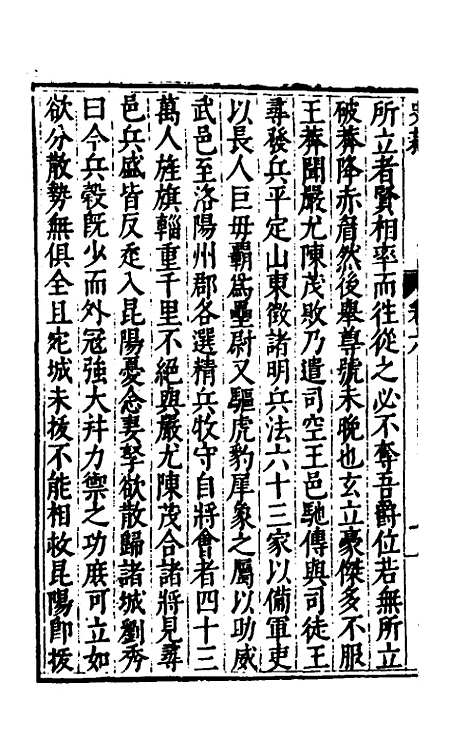 所立者賢相率而徃從之必不奪吾爵位若無所立
破莽降赤眉然後舉尊號未晚也玄立豪傑多不服
王莽聞嚴尤陳茂敗乃遣司空王邑馳傳與司徒王
尋發兵平定山東徵諸明兵法六十三家以備軍吏
以長人巨毋霸爲壘尉又驅虎豹犀象之屬以功威
武邑至洛陽州郡各選精兵牧守自將會者四十三
萬人旌旗輜重千里不絕與嚴尤陳茂合諸將見尋
邑兵盛皆反走入昆陽憂念妻孥欲散歸諸城劉秀
曰今兵穀旣少而外冦強大幷力禦之功庶可立如
欲分散勢無俱全且宛城未拔不能相救昆陽卽拔